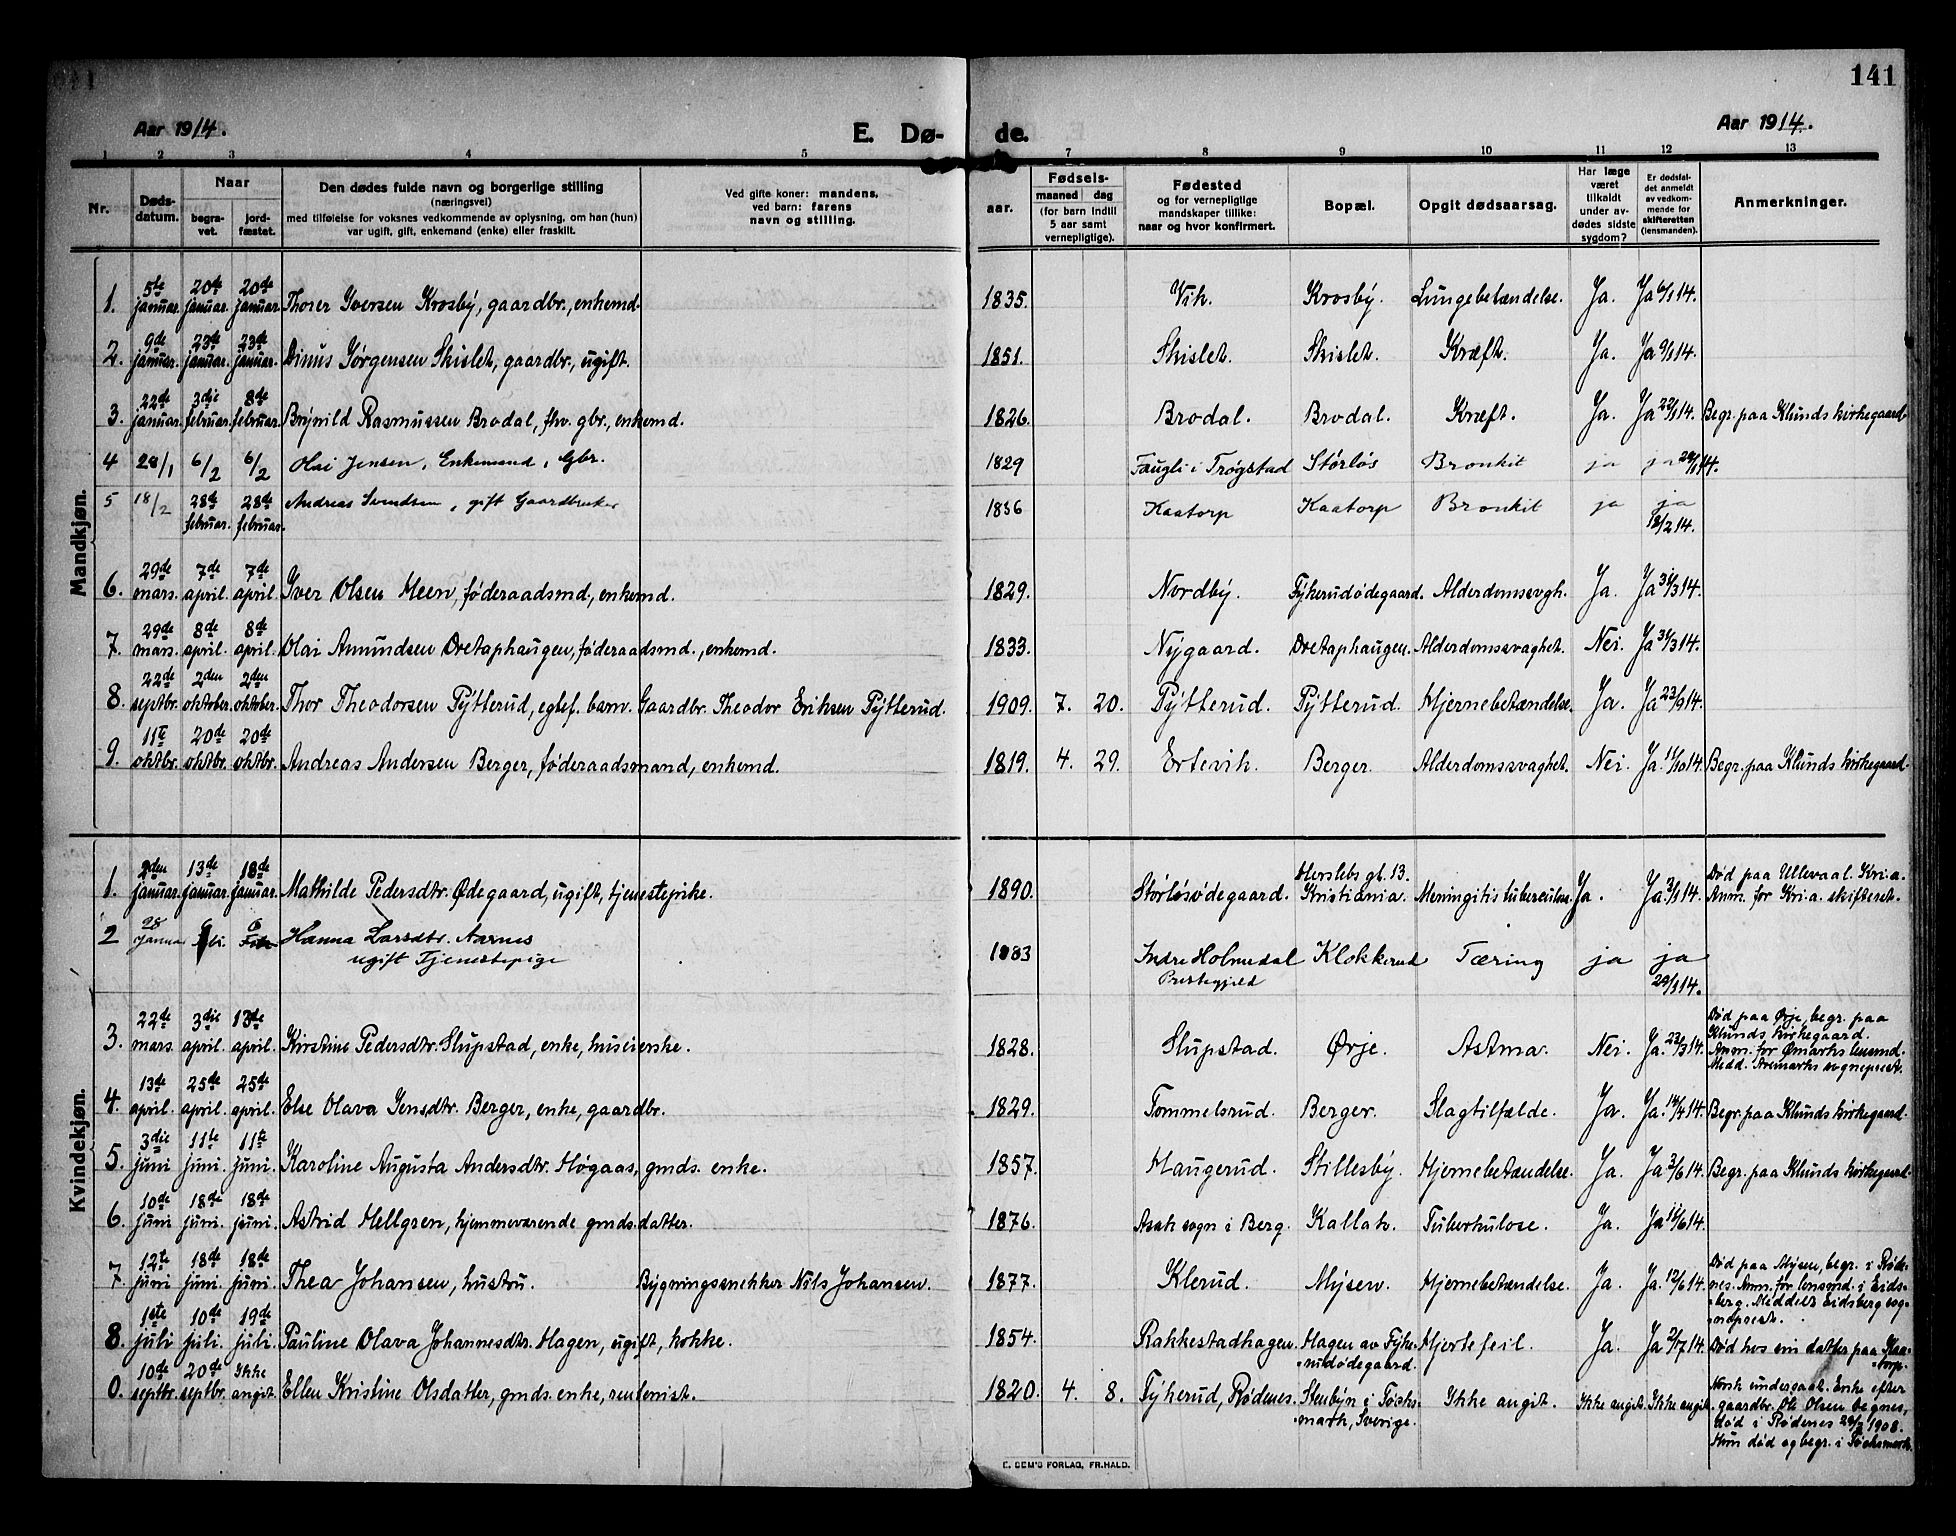 141
Aar 1914.
E. Dø- de.
Aar 1914.
1 2 3 4 5 7 8 9 10 11 12 13
Nr.
Døds-
datum.
Naar
begra-
vet.
jord-
fæstet.
Den dødes fulde navn og borgerlige stilling
(næringsvei)
med tilføielse for voksnes vedkommende av oplysning, om han (hun)
var ugift, gift, enkemand (enke) eller fraskilt.
Ved gifte koner: mandens,
ved barn: farens
navn og stilling.
Fødsels-
aar.
maaned dag
(for barn indtil
5 aar samt
vernepligtige).
Fødested
og for vernepligtige
mandskaper tillike:
naar og hvor konfirmert.
Bopæl.
Opgit dødsaarsag.
Har læge
været
tilkaldt
under av-
dødes sidste
sygdom?
Er dødsfal-
det anmeldt
av vedkom-
mende for
skifteretten
(lensmanden).
Anmerkninger.
Mandkjøn.
1. 5te januar. 20de januar. 20de januar. Thorer Iversen Krosby, gaardbr., enkemd. 1835. Vik. Krosby. Lungebetændelse. Ja. Ja 6/1 14.
2. 9de januar. 23de januar. 23de januar. Dinus Jørgensen Skislet, gaardbr., ugift. 1851. Skislet. Skislet. Kræft. Ja. Ja 9/1 14.
3. 22de januar. 3die februar. 8de februar. Brynild Rasmussen Brodal, fhv. gbr., enkemd. 1826. Brodal. Brodal. Kræft. Ja. Ja 22/1 14. Begr. paa Klunds kirkegaard
4 28/1 6/2 6/2 Olai Jensen, Enkemand, Gbr. 1829 Faugli i Trøgstad Størløs Bronkit ja ja 29/1 14.
5 18/2 28de februar. 28de februar. Andreas Svendsen, gift Gaardbruker 1856 Kaatorp Kaatorp Bronkit ja ja
18/2 14.
6. 29de mars. 7de april. 7de april. Iver Olsen Meen, føderaadsmd, enkemd. 1829. Nordby. Fykerudødegaard. Alderdomssvagh. Ja. Ja 31/3 14.
7. 29de mars. 8de april. 8de april. Olai Amundsen Dretaphaugen, føderaadsmd., enkemd. 1833. Nygaard. Dretaphaugen. Alderdomssvaghet. Nei. Ja 31/3 14.
8. 22de septbr. 2den oktober. 2den oktober. Thor Theodorsen Pytterud, egtef. barn. Gaardbr. Theodor Eriksen Pytterud. 1909. 7. 20. Pytterud. Pytterud. Hjernebetændelse. Ja. Ja 23/9 14.
9. 11te oktbr. 20de oktbr. 20de oktbr. Andreas Andersen Berger, føderaadsmand, enkemd. 1819. 4. 29. Ertevik. Berger. Alderdomssvaghet. Nei. Ja. 11/10 14. Begr. paa Klunds kirkegaard.
Kvindekjøn.
1. 2den januar. 13de januar. 18de januar. Mathilde Pedersdtr. Ødegaard, ugift, tjenestepike. 1890. Størløsødegaard. Herslebs gt. 13.
Kristiania. Meningitis tuberculose. Ja. Ja. 3/1 14. Død paa Ullevaal. Kri.a.
Anm. for Kri.a. skifteret.
2 28 Januar 6 Hanna Larsdtr. Aarnes
ugift Tjenestepige 1883 Indre Holmedal
Prestegjeld Klokkerud Tæring ja ja
29/1 14.
3. 22de mars. 3die april. 13de april. Kirstine Pedersdtr. Slupstad, enke, huseierske. 1828. Slupstad. Ørje. Astma. Nei. Ja. 23/3 14. Død paa Ørje, begr. paa
Klunds kirkegaard.
Anm. for Ømarks lensmd.
Medd. Aremarks sogneprest.
4. 13de april. 25de april. 25de april. Else Olava Jensdtr. Berger, enke, gaardbr. 1829. Tommelsrud. Berger. Slagtilfælde. Ja. Ja. 14/4 14. Begr. paa Klunds kirkegaard.
5. 3die juni 11te juni. 11te juni. Karoline Augusta Andersdtr. Høgaas, gmds. enke. 1857. Haugerud. Stillesby. Hjernebetændelse. Ja. Ja 3/6 14. Begr. paa Klunds kirkegaard.
6. 10de juni 18de juni. 18de juni. Astrid Hellgren, hjemmeværende gmds. datter. 1876. Asak sogn i Berg. Kallak. Tuberkulose. Ja. Ja 11/6 14.
7. 12te juni 18de juni. 18de juni. Thea Johansen, hustru. Bygningssnekker Nils Johansen. 1877. Klerud. Mysen. Hjernebetændelse. Ja. Ja. 12/6 14. Død paa Mysen, begr. i Røde-
nes. Anm. for lensmd. i Eids-
berg. Meddelt Eidsberg sog-
neprest.
8. 1ste juli 10de juli. 19de juli. Pauline Olava Johannesdtr. Hagen, ugift, kokke. 1854. Rakkestadhagen. Hagen av Fyke-
rudødegaard. Hjertefeil. Ja. Ja 2/7 14. Død hos ein datter paa Kaa-
torp.
0. 10de septbr. 20de septbr. Ikke angit. Ellen Kristine Olsdatter, gmds. enke, rentenist. 1820. 4. 8. Fykerud, Rødenes. Stenbyn i Töcks-
mark, Sverige. Ikke angit. Ikke angit. Ikke angit. Norsk undersaat. Enke efter
gaardbr. Ole Olsen
død i Rødenes 1908.
Hun død og begr. i Töcksmark.
E. SEM'S FORLAG, FR.HALD.